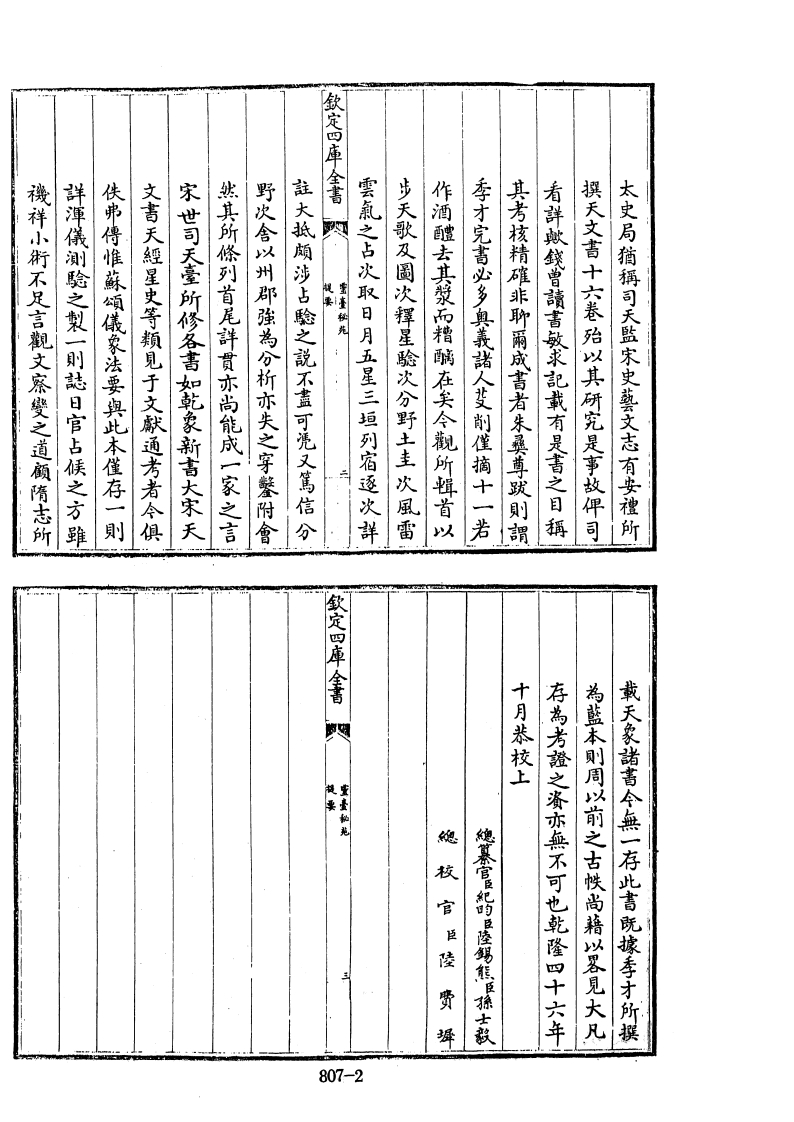 太史局猶稱司天監宋史藝文志有安禮所
撰天文書十六卷殆以其研究是事故俾司
看詳歟錢曾讀書敏求記載有是書之目稱
其考核精確非聊爾成書者朱彞尊跋則謂
季才完書必多奥義諸人芟削僅摘十一若
作酒醴去其漿而糟醨在矣今觀所輯首以
步天歌及圖次釋星驗次分野土圭次風雷
雲氣之占次取日月五星三垣列宿逐次詳
欽定四庫全書
靈臺秘苑
提要
二
註大抵頗涉占驗之説不盡可凴又篤信分
野次舍以州郡強為分析亦失之穿鑿附會
然其所條列首尾詳貫亦尚能成一家之言
宋世司天臺所修各書如乾象新書大宋天
文書天經星史等類見于文獻通考者今俱
佚弗傳惟蘇頌儀象法要與此本僅存一則
詳渾儀測驗之製一則誌日官占候之方雖
禨祥小術不足言觀文察變之道顧隋志所
載天象諸書今無一存此書既據季才所撰
為藍本則周以前之古帙尚藉以畧見大凡
存為考證之資亦無不可也乾隆四十六年
十月恭校上
總纂官臣紀昀臣陸錫熊臣孫士毅
總校官臣陸費墀
欽定四庫全書
靈臺秘苑
提要
三
807-2